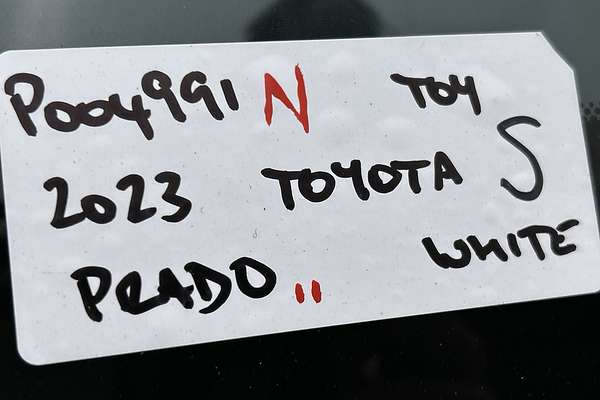 P004991 N TOY
2023 TOYOTA S
PRADO " WHITE